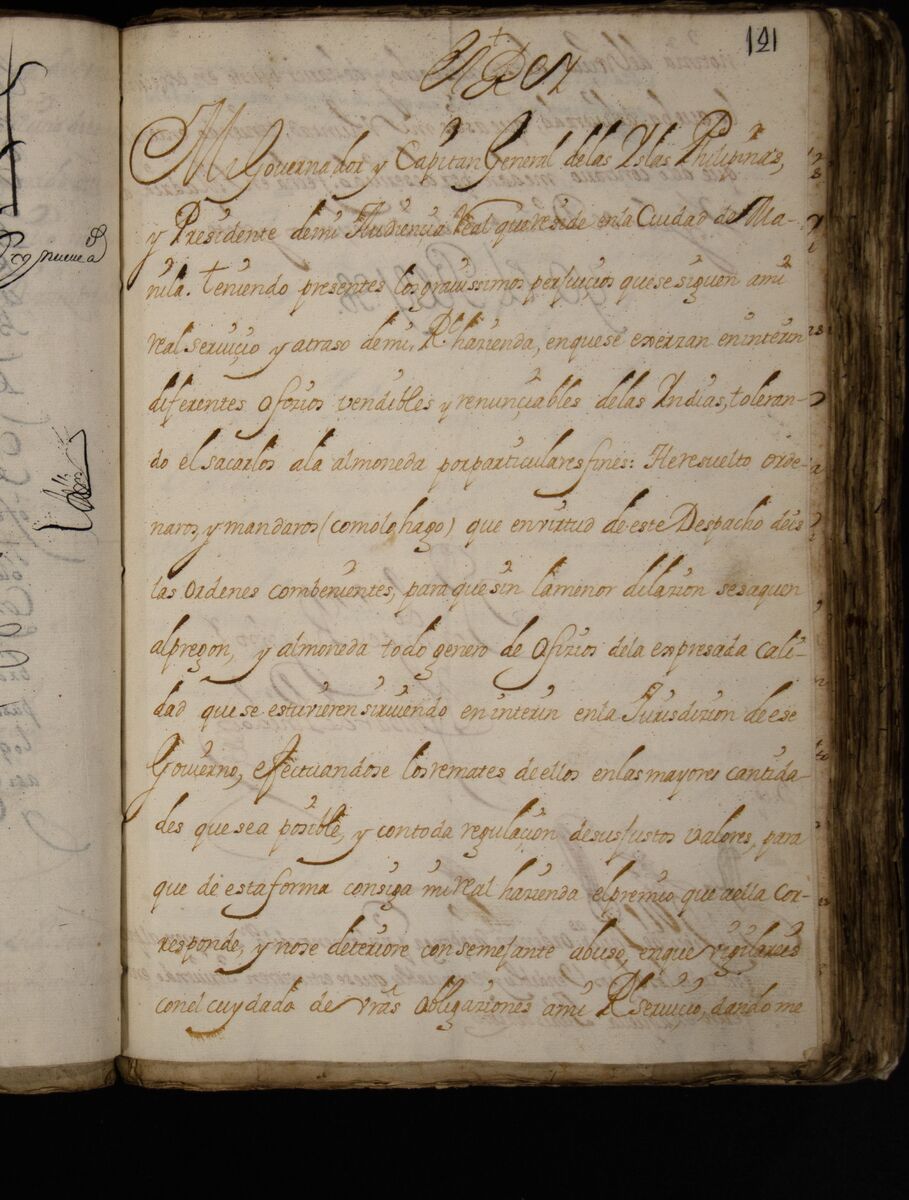 121
El Rey
Mi Governador y Capitan General de las Yslas Philipinas,
y Presidente demi Audiencia Real que reside en la Ciudad de Ma-
nila. Teniendo presentes los gravissimos perjuicios que se siguen ami
real serviçio y atraso demi Rl. hazienda, en que se exerzan en interin
diferentes ofizios vendibles y renunçiables delas Yndias, toleran-
do el sacarlos ala almoneda por particulares fines: He resuelto orde-
naros, y mandaros (como lo hago) que en virtud de este Despacho deis
las ordenes combenientes, para que sin la menor dilazion se saquen
al pregon, y almoneda todo genero de ofizios dela expresada cali-
dad que se estuvieren sirviendo en interin en la Jurisdizion de ese
Govierno, efectuandose los remates de ellos en las mayores cantida-
des que sea posible, y con toda regulaçion de sus justos valores, para
que de esta forma consiga mi real hazienda el premio que a ella cor-
responde, y no se deteriore con semejante abuso, en que vigilareis
con el cuydado de vras obligaziones ami Rl servicio, dando me